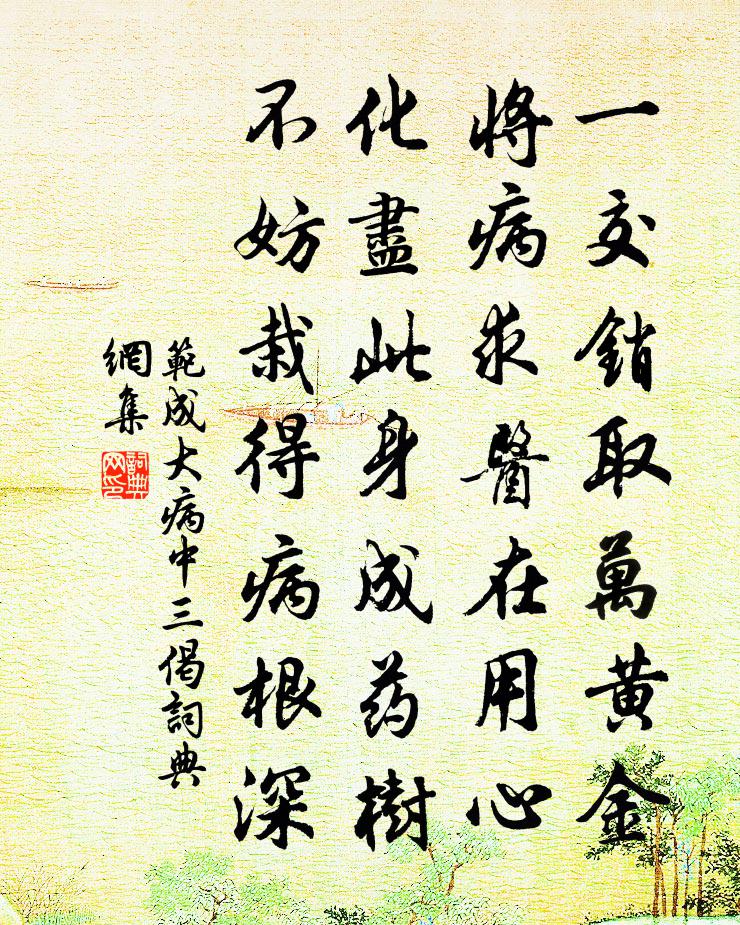 一交銷取萬黃金
將病求醫在用心
化盡此身成药樹
不妨栽得病根深
範成大病中三偈詞典
網集
詞典
网印